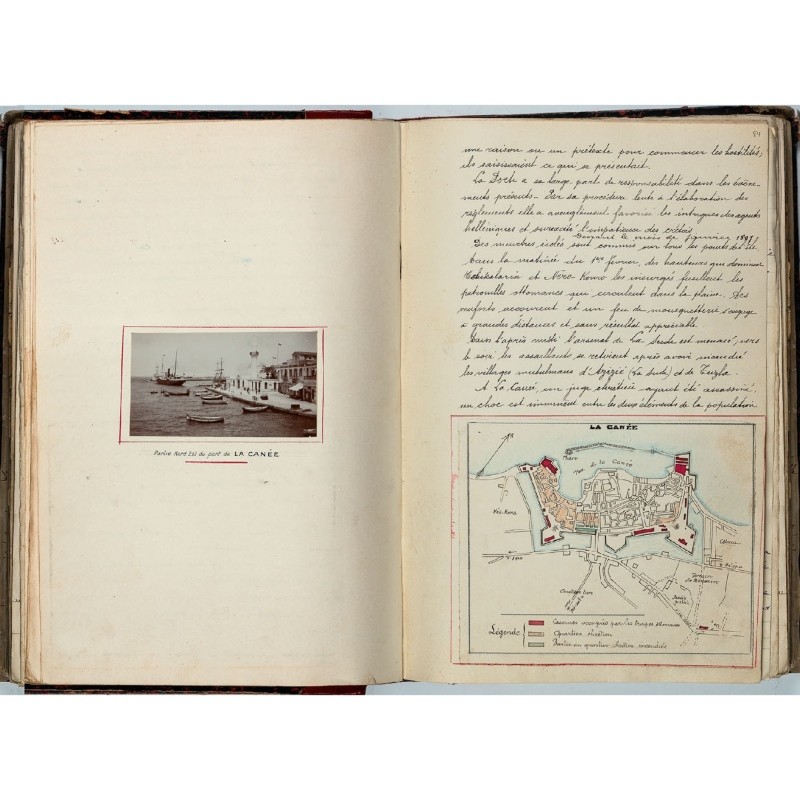 Partie Nord Est du port de LA CANÉE
84
une raison ou un prétexte pour commencer les hostilités,
ils saisissaient ce qui se présentait.
La Porte a sa large part de responsabilité dans les évène-
ments présents - Par sa procédure lente à l'élaboration des
règlements elle a aveuglément favorisé les intrigues des agents
helléniques et surexcité l'impatience des crétois
Durant le mois de janvier 1897
Des meurtres isolés sont commis sur tous les points de l'île.
Dans la matinée du 1er février, des hauteurs qui dominent
et Néro Kouro les insurgés fusillent les
patrouilles ottomanes qui circulent dans la plaine. Des
renforts accourent et un feu de mousqueterie s'engage
à grandes distances et sans résultat appréciable.
Dans l'après midi l'arsenal de La Sude est menacé, vers
le soir les assaillants se retirent après avoir incendié
les villages musulmans d'Azizié (La Sude) et de Tuzla.
A La Canée, un juge chrétien ayant été assassiné,
un choc est imminent entre les deux éléments de la population
LA CANÉE
N
Phare
Port de la Canée
Légende
Casernes occupées par les troupes ottomanes
Quartier chrétien
Partie du quartier chrétien incendiée